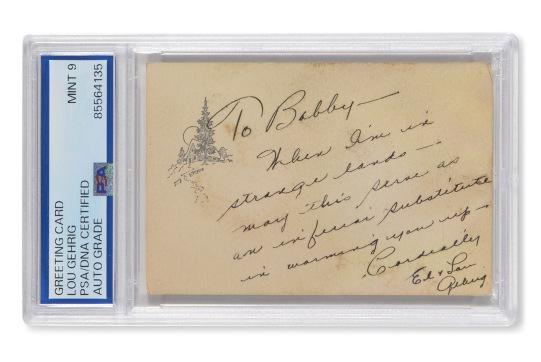 MINT 9
85564135
PSA
GREETING CARD
LOU GEHRIG
PSA/DNA CERTIFIED
AUTO GRADE
To Bobby—
When I'm in
strange lands—
may this serve as
an inferior substitute
in warming you up—
Cordially
El & Lou
Gehrig